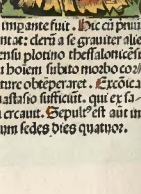 impante fuit. Hic cũ priuu
ntıæ: clerũ a se grauiter alie
ensu plotino thessalonicẽsi
u hoiem subito morbo cor/
ture obtẽperaret. Excõica
astasio sufficiũt. qui ex fa-
crcaut. Sepultꝰ est aũt in
um sedes dies quatuor.